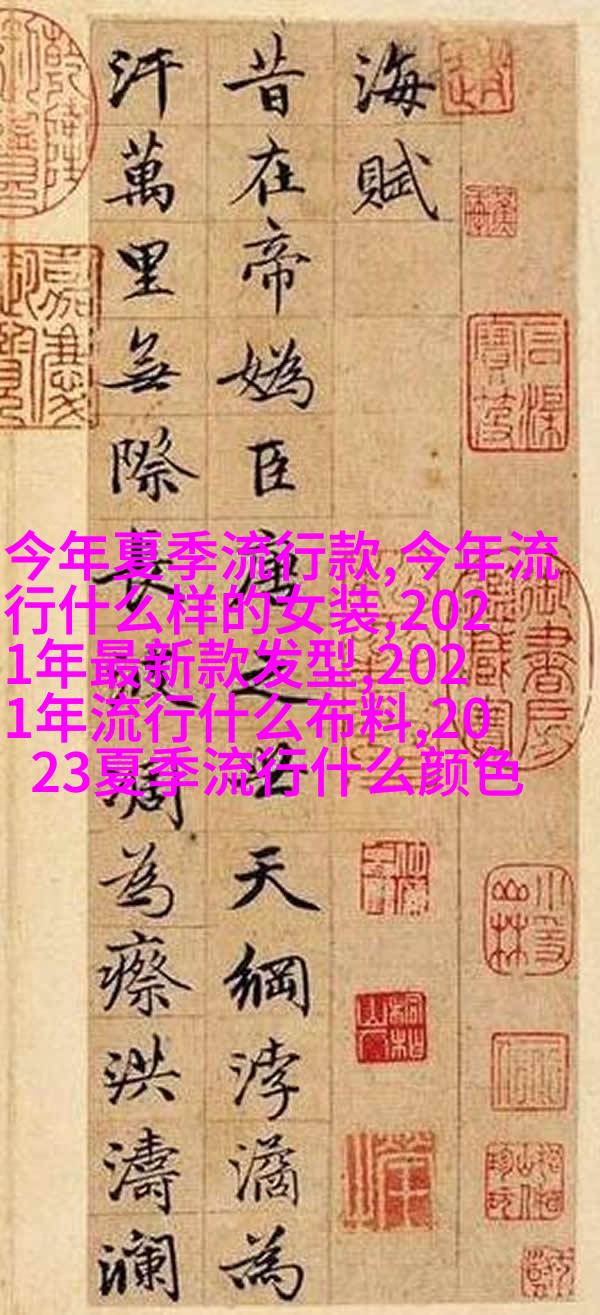 海賦
昔在帝媯臣唐之世天綱浡潏為
汗萬里無際長波凋為瘵洪濤瀾
今年夏季流行款,今年流
行什么样的女装,202
1年最新款发型,202
1年流行什么布料,20
23夏季流行什么颜色